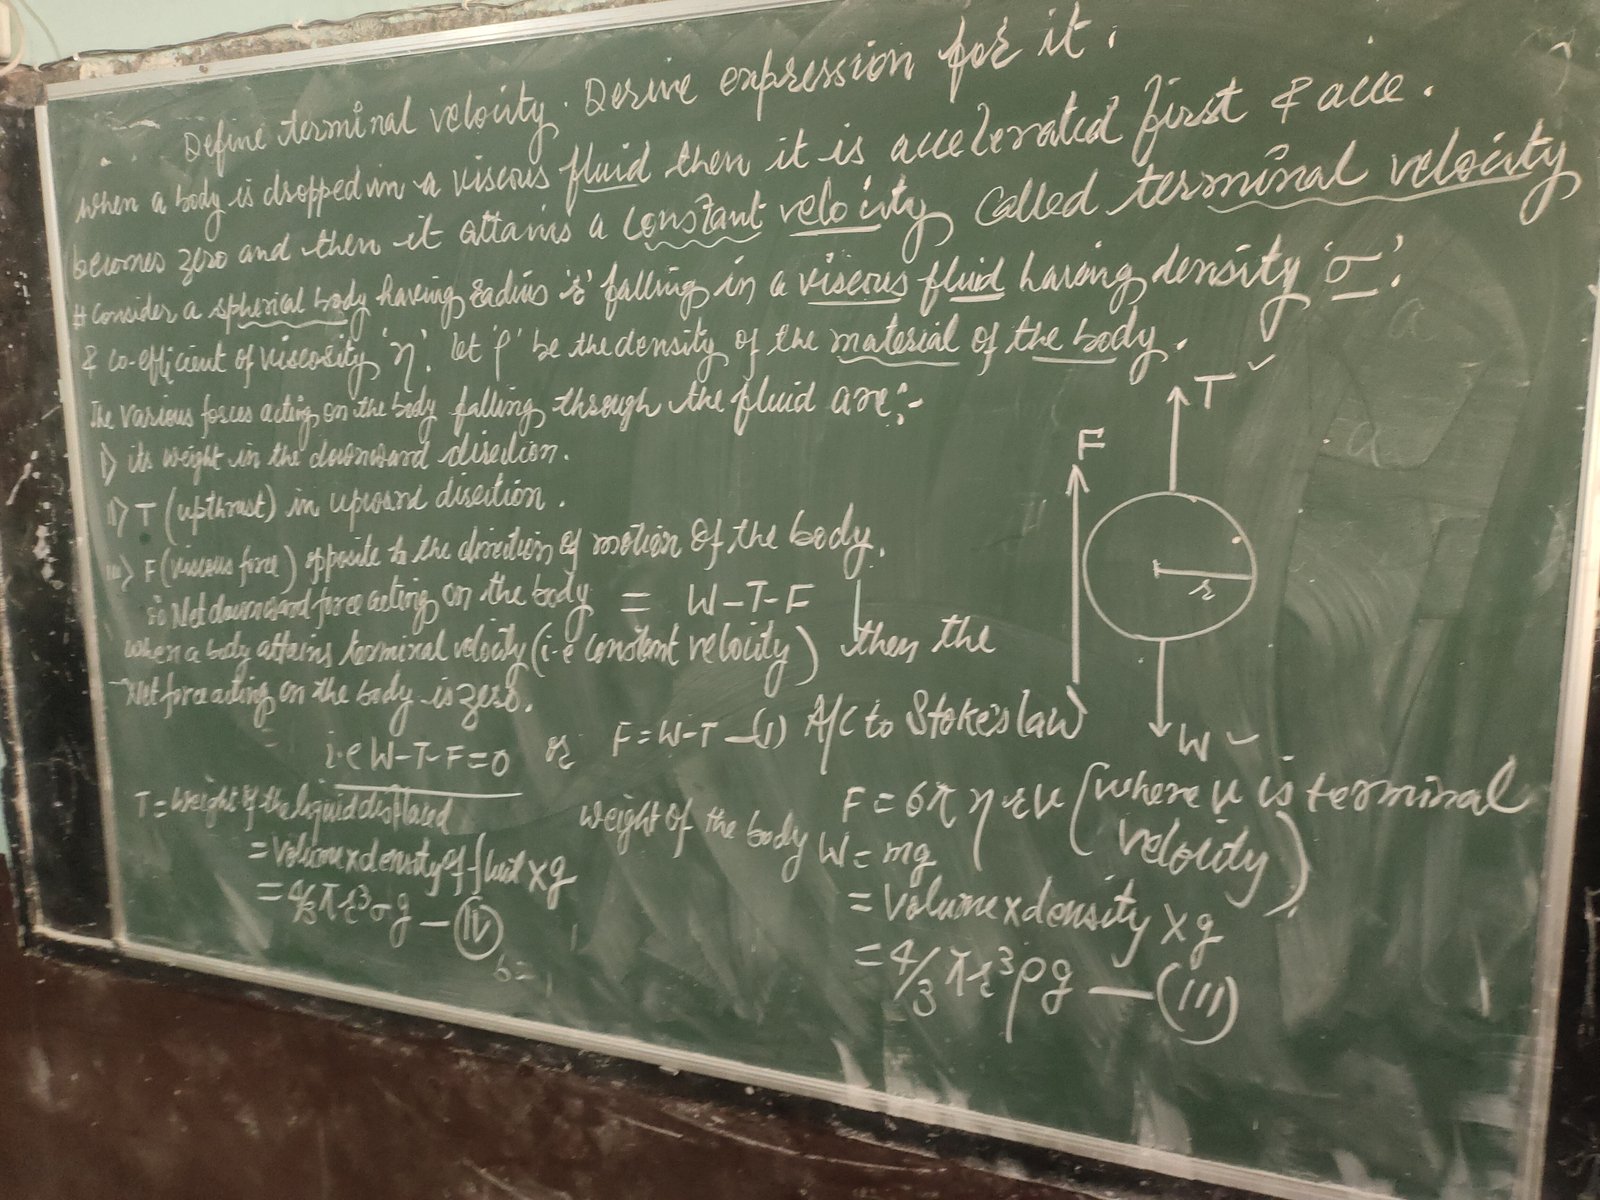 Define terminal velocity. Derive expression for it.
when a body is dropped in a viscous fluid then it is accelerated first & acce.
becomes zero and then it attains a constant velocity called terminal velocity
# Consider a spherical body having radius 'r' falling in a viscous fluid having density 'σ'.
& co-efficient of viscosity 'η'. let 'ρ' be the density of the material of the body.
The various forces acting on the body falling through the fluid are:-
i> its weight in the downward direction.
ii> T (upthrust) in upward direction.
iii> F (viscous force) opposite to the direction of motion of the body.
∴ Net downward force acting on the body = W-T-F
when a body attains terminal velocity (i.e constant velocity) then the
Net force acting on the body is zero.
i.e W-T-F=0 or F=W-T —(1) A/C to Stoke's law
F = 6π η r v (where v is terminal
velocity)
T = weight of the liquid displaced
= Volume x density of fluid x g
= 4/3 π r³ σ g — (IV)
6 =
weight of the body W = mg
= Volume x density x g
= 4/3 π r³ ρ g — (III)
T
F
r
W